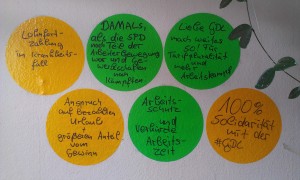 Lohnfort-
zahlung
im Krankheits-
fall
DAMALS,
als die SPD
noch Teil der
Arbeiterbewegung
war und Ge-
werkschaften
noch
kämpften
Liebe GDL
noch weitere
so! Für
Tarifpluralität
und
mehr
Arbeitskampf
Anspruch
auf bezahlten
Urlaub
größeren Anteil vom
Gewinn
Arbeits-
schutz
und
verkürzte
Arbeits-
zeit
100%
Solidarität
mit der
#GDL